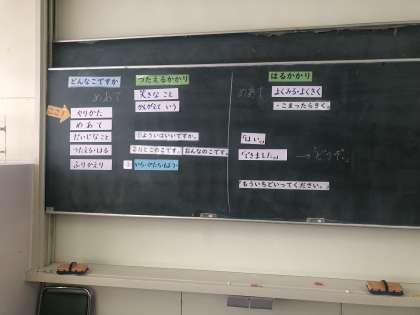 どんなこですか
めあて
やりかた
めあて
だいじなこと
つたえる・はる
ふりかえり
つたえるかかり
すきなこと
かんがえて いう
じょういはいいですか。
おとこのこです。おんなのこです。
いろ・かたち・もよう
はるかかり
めあて
よくみる・よくきく
・こまったらきく。
「はい。」
「できました。」
→「どうぞ。」
「もういちどいってください。」